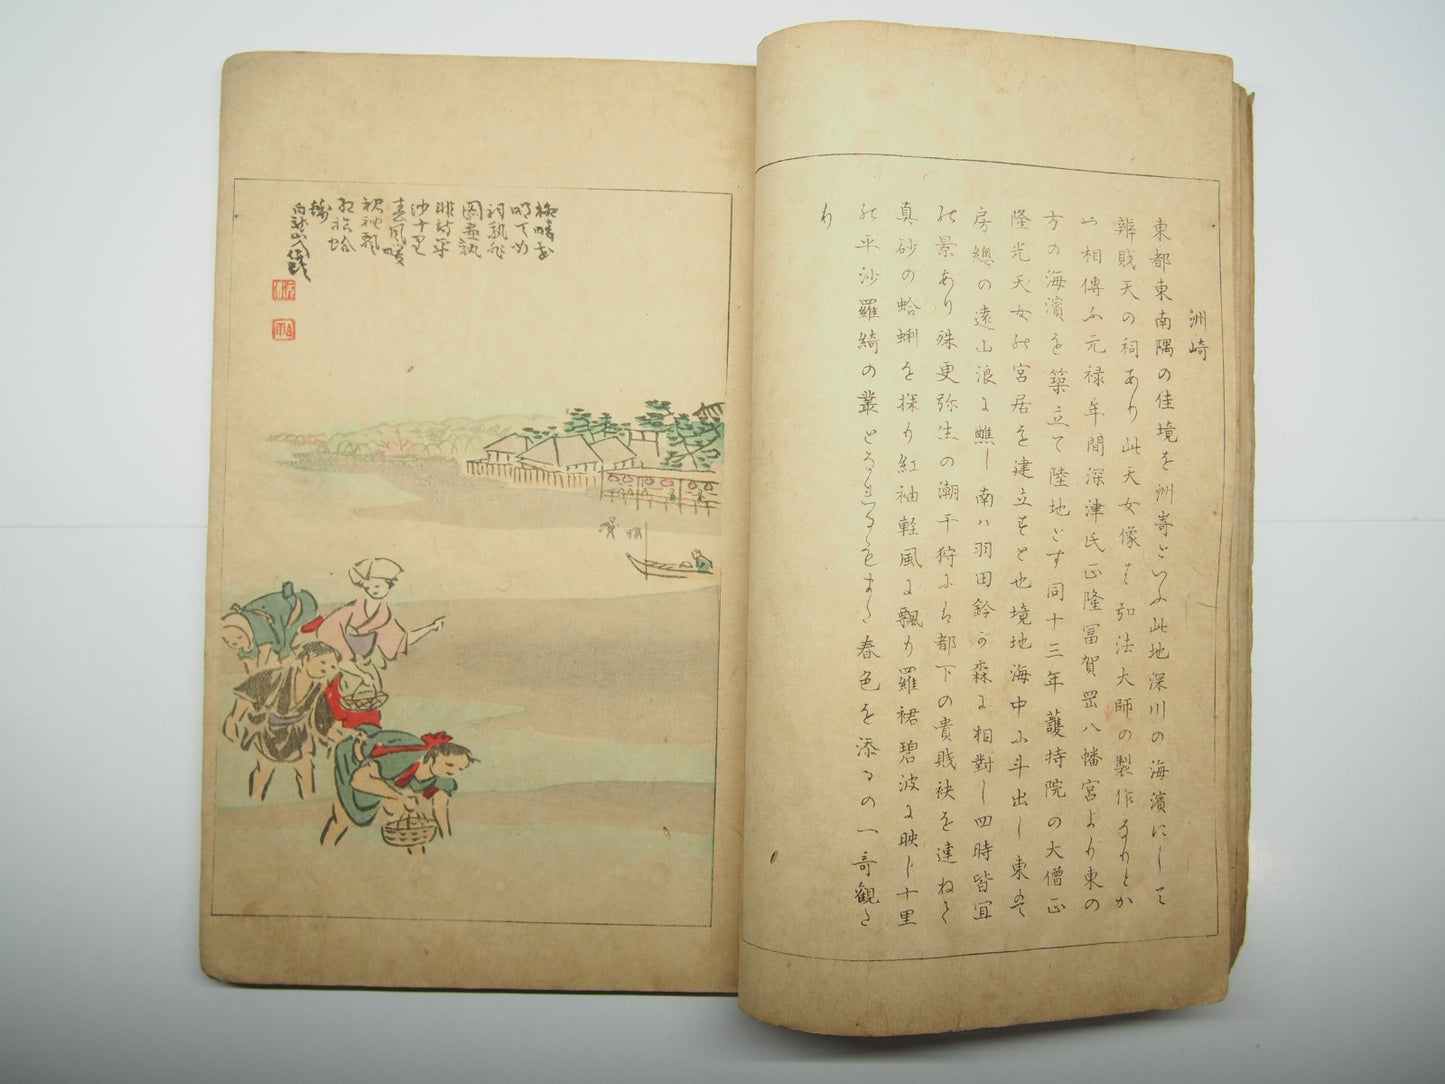 洲崎
東都東南隅の佳境を洲嵜といふ此地深川の海濱にして
辨賎天の祠あり此天女像は弘法大師の製作なりとか
や相傳ふ元禄年間深津氏正隆冨賀岡八幡宮より東の
方の海濱を築立て陸地とす同十三年護持院の大僧正
隆光天女の宮居を建立すと也境地海中に斗出し東は
房總の遠山浪に醮し南ハ羽田鈴が森に相對し四時皆宜
の景あり殊更弥生の潮干狩には都下の貴賎袂を連ねて
真砂の蛤蜊を探り紅袖軽風に飄り羅裙碧波に映じ十里
の平沙羅綺の叢となれるもまた春色を添るの一奇觀た
り
祠孰
沙十里
春風暖
裙袖飄